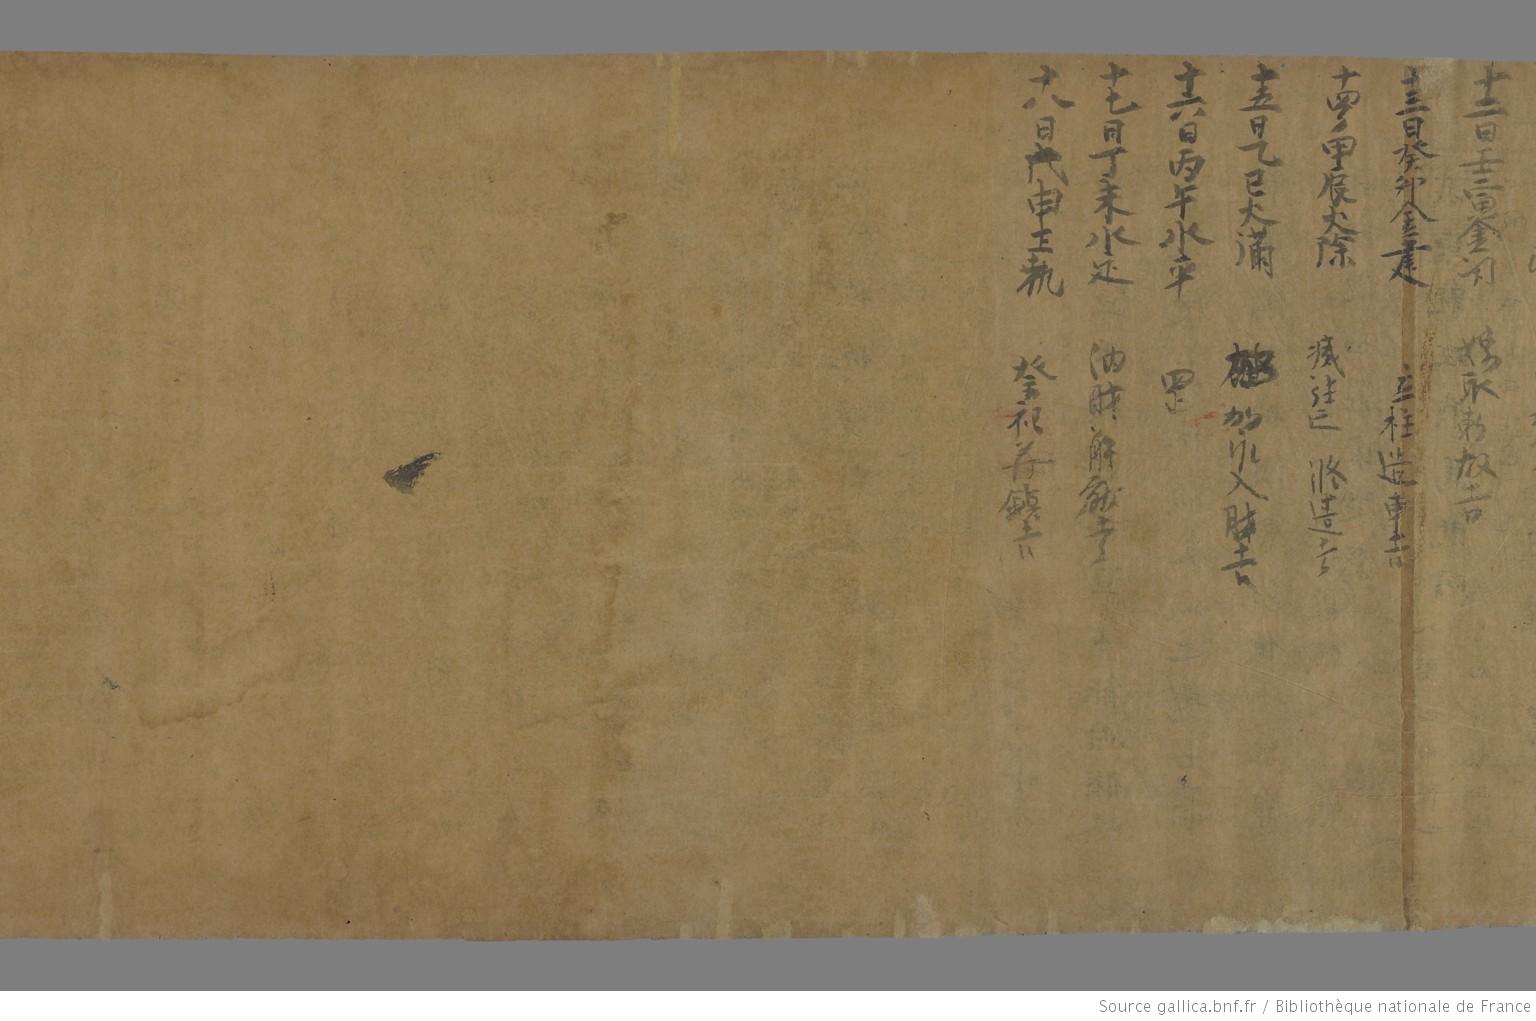 十二日壬寅金閉 嫁取 放吉
十三日癸卯金建 立柱造車吉
十四甲辰火除 滅 修造吉
十五日乙巳火滿 加 入財吉
十六日丙午水平 罡
十七日丁未水定 内財 解厭吉
十八日戊申土執 祭祀 鎮吉
Source gallica.bnf.fr / Bibliothèque nationale de France